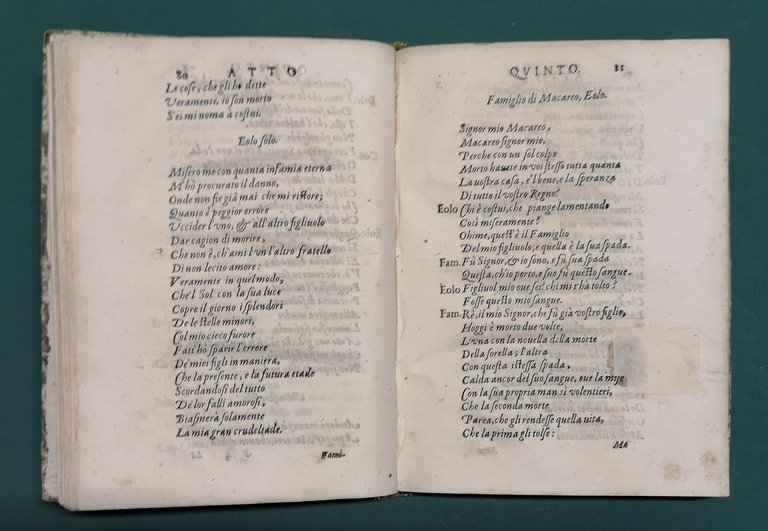 80 ATTO
Le cose, che gli ho dette
Veramente, io son morto
Sei mi noma a costui.
Eolo solo.
Misero me con quanta infamia eterna
M'hò procurato il danno,
Onde non fie già mai che mi ristore;
Quanto è peggior errore
Vccider l'vno, & all'altro figliuolo
Dar cagion di morire,
Che non è, ch'ami l'vn l'altro fratello
Di non lecito amore:
Veramente in quel modo,
Che'l Sol con la sua luce
Copre il giorno i splendori
De le stelle minori,
Col mio cieco furore
Fatt'hò sparir l'errore
De' miei figli in maniera,
Che la presente, e la futura etade
Scordandosi del tutto
De' lor falli amorosi,
Biasinerà solamente
La mia gran crudeltade.
Fami-
QVINTO. 81
Famiglio di Macareo, Eolo.
Signor mio Macareo,
Macareo signor mio,
Perche con un sol colpo
Morto hauete in voi stesso tutta quanta
La uostra casa, e'l bene, e la speranza
Di tutto il vostro Regno?
Eolo Chi è costui, che piange lamentando
Così miseramente?
Ohime, quest'è il Famiglio
Del mio figliuolo, e quella è la sua spada.
Fam. Fù Signor, & io sono, e fù sua spada
Questa, ch'io porto, e suo fù questo sangue.
Eolo Figliuol mio oue sei? chi mi t'hà tolto?
Fosse questo mio sangue.
Fam. Rè, il mio Signor, che fù già vostro figlio,
Hoggi è morto due volte,
L'vna con la nouella della morte
Della sorella; l'altra
Con questa istessa spada,
Calda ancor del suo sangue, oue la mise
Con la sua propria man si volentieri,
Che la seconda morte
Parea, che gli rendesse quella uita,
Che la prima gli tolse:
Ma